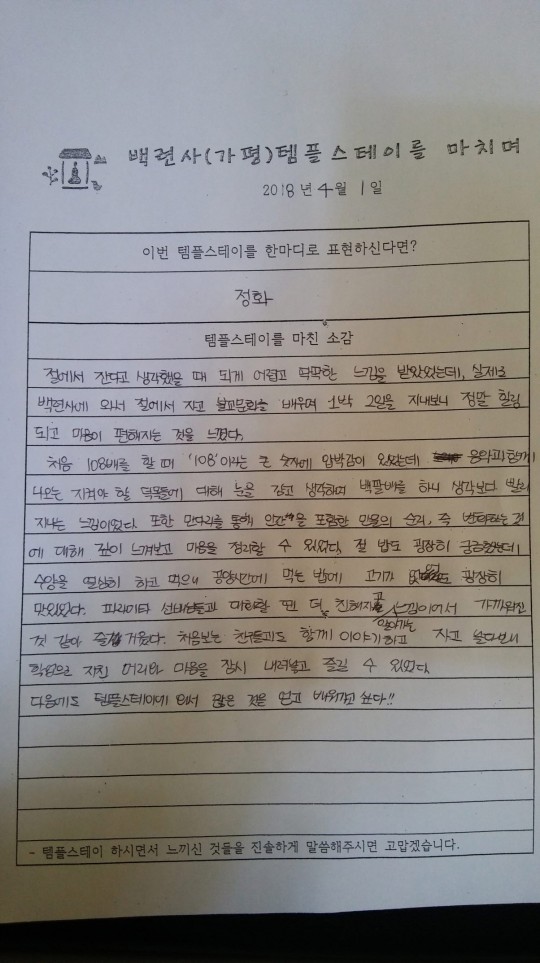 백련사(가평)템플스테이를 마치며
2018년 4월 1일
이번 템플스테이를 한마디로 표현하신다면?
정화
템플스테이를 마친 소감
절에서 잔다고 생각했을 때 되게 어렵고 딱딱한 느낌을 받았었는데, 실제로
백련사에 와서 절에서 자고 불교문화를 배우며 1박 2일을 지내보니 정말 힐링
되고 마음이 편해지는 것을 느꼈다.
처음 108배를 할 때 '108'이라는 큰 숫자에 압박감이 있었는데 음악과 함께
나오는 지켜야 할 덕목들에 대해 눈을 감고 생각하며 백팔배를 하니 생각보다 빨리
지나는 느낌이었다. 또한 만다라를 통해 인간을 포함한 만물의 순리, 즉 변화하는 것
에 대해 깊이 느껴보고 마음을 정리할 수 있었다. 절 밥도 굉장히 궁금했는데
수양을 열심히 하고 먹으니 공양시간에 먹는 밥에 고기가 없어도 굉장히
맛있었다. 파라미타 선배님들과 대화할 땐 더 친해지고 느낌이어서 가까워진
것 같아 즐거웠다. 처음보는 친구들과도 함께 이야기하고 자고 놀다보니
학업으로 지친 머리와 마음을 잠시 내려놓고 즐길 수 있었다.
다음에도 템플스테이에 와서 많은 것을 얻고 배워가고 싶다!!
- 템플스테이 하시면서 느끼신 것들을 진솔하게 말씀해주시면 고맙겠습니다.